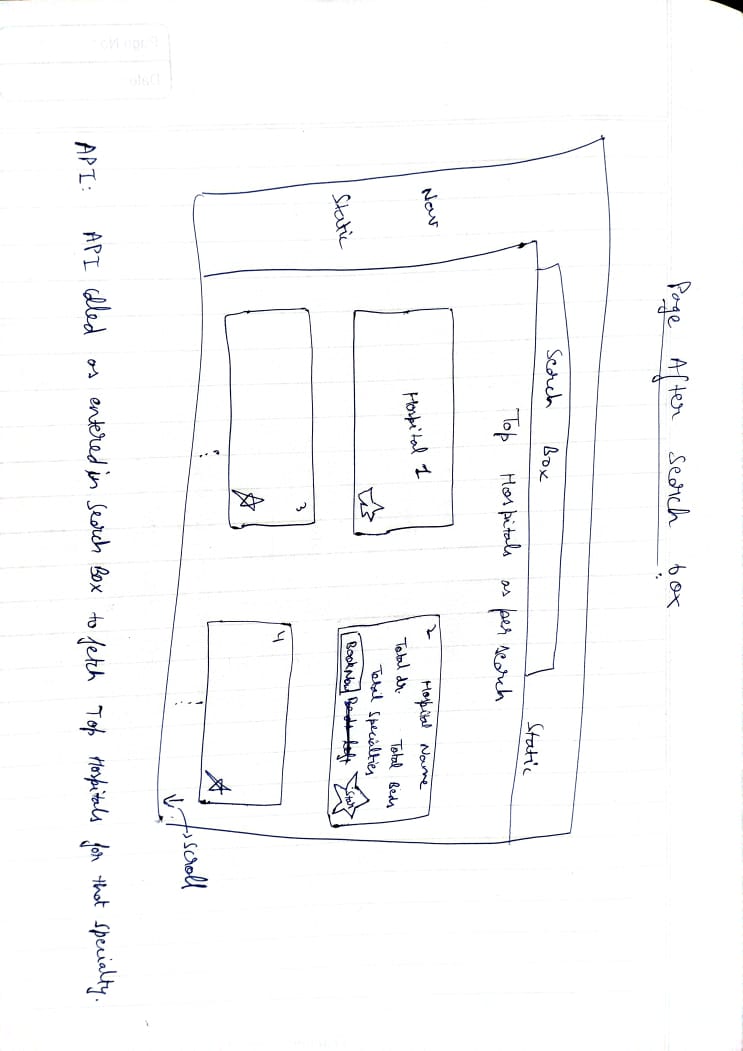 Page After Search box :
Search Box
Static
Top Hospitals as per search
Nav
Static
Hospital 1
2
Hospital Name
Total dr. Total Beds
Total Specialities
Book Now
Star
3
4
scroll
API: API Called as entered in Search Box to fetch Top Hospitals for that specialty.